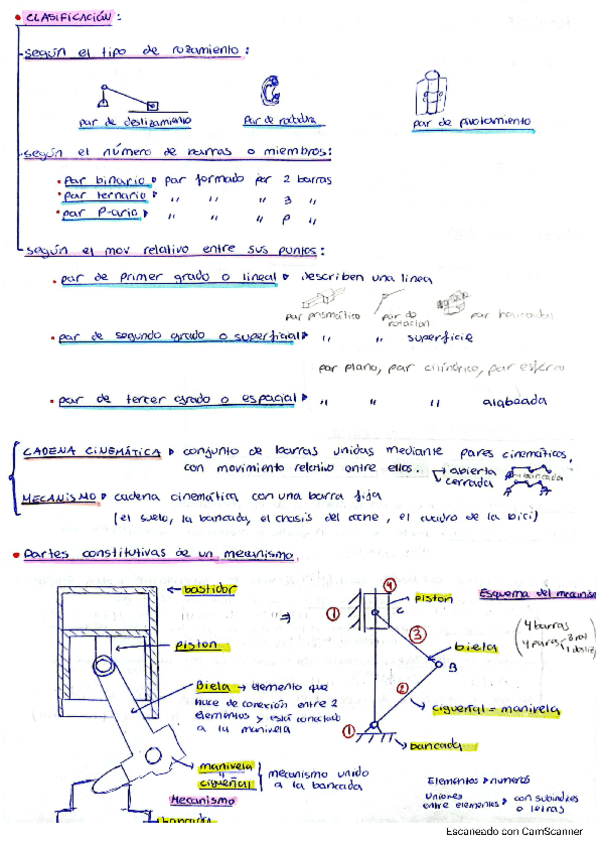 • CLASIFICACIÓN:
según el tipo de rozamiento:
par de deslizamiento par de rodadura par de pivotamiento
según el número de barras o miembros:
• par binario par formado por 2 barras
• par ternario " " " 3 "
• par P-ario " " " P "
según el mov relativo entre sus puntos:
• par de primer grado o lineal describen una linea
par prismático par de rotación par helicoidal
• par de segundo grado o superficial " " superficie
par plano, par cilíndrico, par esferico
• par de tercer grado o espacial " " " alabeada
CADENA CINEMÁTICA conjunto de barras unidas mediante pares cinemáticos,
con movimiento relativo entre ellos. abierta
cerrada
MECANISMO cadena cinemática con una barra fija
(el suelo, la bancada, el chasis del coche, el cuadro de la bici)
• Partes constitutivas de un mecanismo
bastidor
piston
Biela → elemento que
hace de conexión entre 2
elementos y está conectado
a la manivela
manivela
cigueñal
mecanismo unido
a la bancada
Mecanismo
bancada
⇒
Esquema del mecanism
4
1
C
piston
3
4 barras
4 pares
biela
B
2
cigueñal = manivela
1
bancada
Elementos números
Uniones
entre elementos con subindices
o letras
Escaneado con CamScanner